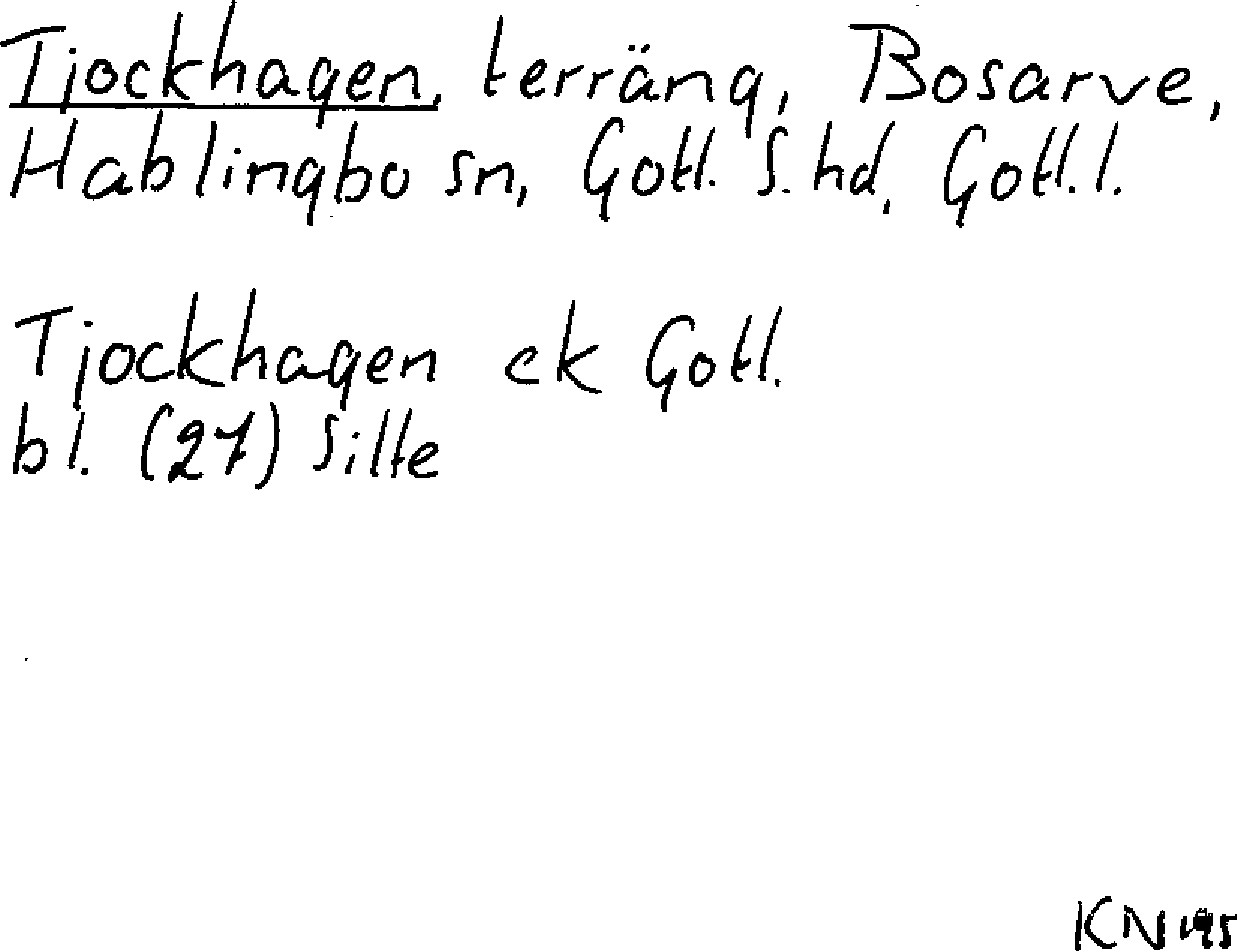 Tjockhagen, terräng, Bosarve,
Hablingbo sn, Gotl. S. hd, Gotl. l.
Tjockhagen ek Gotl.
bl. (27) Silte
KN -95